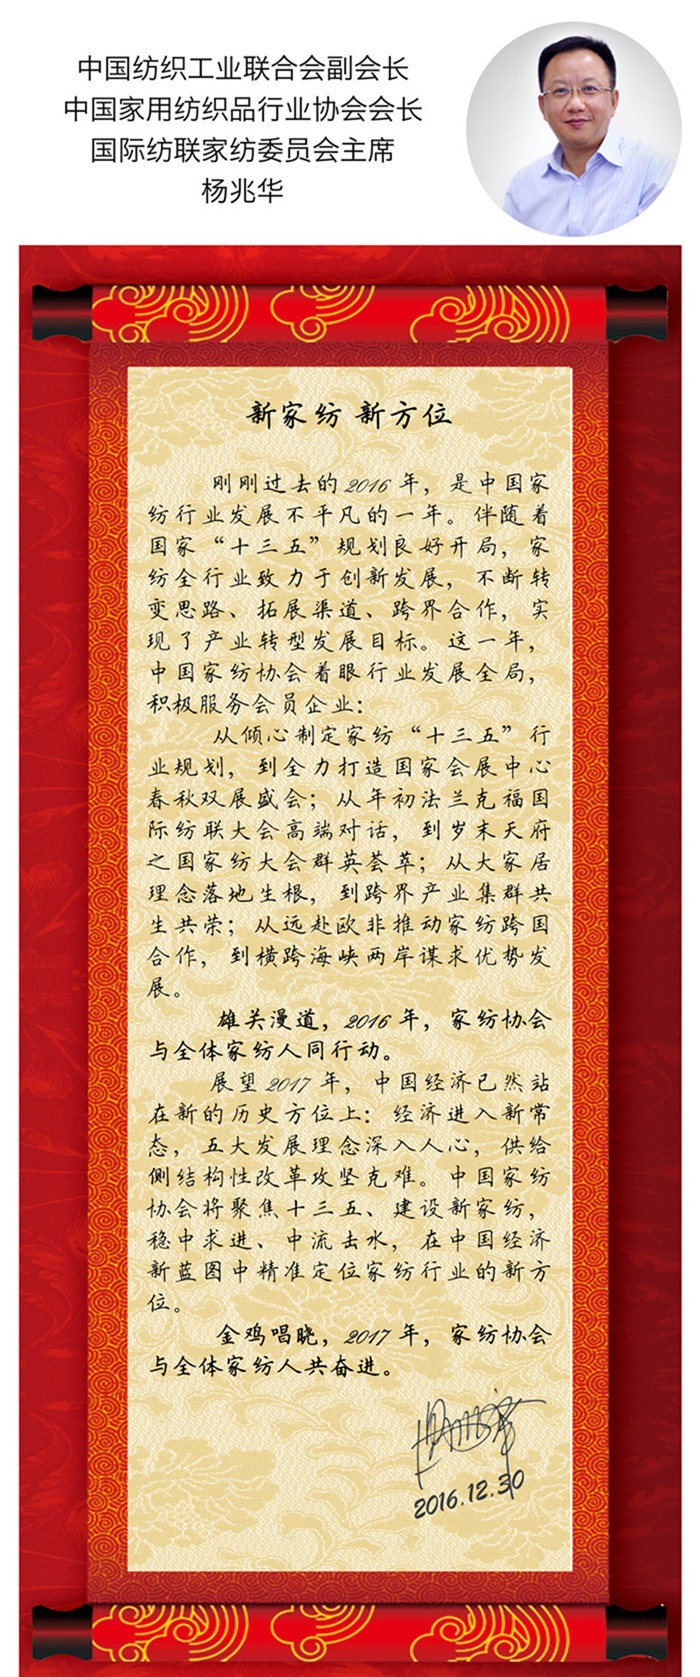 中国纺织工业联合会副会长
中国家用纺织品行业协会会长
国际纺联家纺委员会主席
杨兆华
新家纺 新方位
刚刚过去的2016年，是中国家
纺行业发展不平凡的一年。伴随着
国家“十三五”规划良好开局，家
纺全行业致力于创新发展，不断转
变思路、拓展渠道、跨界合作，实
现了产业转型发展目标。这一年，
中国家纺协会着眼行业发展全局，
积极服务会员企业：
从倾心制定家纺“十三五”行
业规划，到全力打造国家会展中心
春秋双展盛会；从年初法兰克福国
际纺联大会高端对话，到岁末天府
之国家纺大会群英荟萃；从大家居
理念落地生根，到跨界产业集群共
生共荣；从远赴欧非推动家纺跨国
合作，到横跨海峡两岸谋求优势发
展。
雄关漫道，2016年，家纺协会
与全体家纺人同行动。
展望2017年，中国经济已然站
在新的历史方位上：经济进入新常
态，五大发展理念深入人心，供给
侧结构性改革攻坚克难。中国家纺
协会将聚焦十三五、建设新家纺，
稳中求进、中流击水，在中国经济
新蓝图中精准定位家纺行业的新方
位。
金鸡唱晓，2017年，家纺协会
与全体家纺人共奋进。
2016.12.30